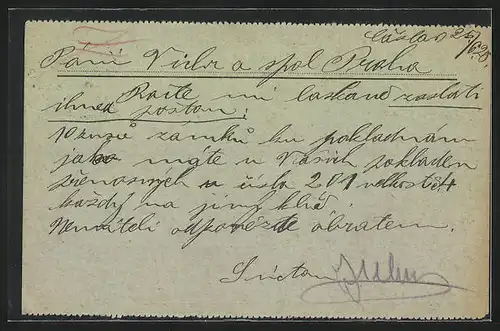 Čáslav 24/6 20.
Páni Vichr a spol Praha
Račte mi laskavě zaslati
ihned poštou:
10 kusů zamků ku pokladnám
jako máte u Vašich pokladen
přenosných u čísla 201 velkost 4
každý na jiný klíč.
Nemáteli odpovězte obratem.
S úctou